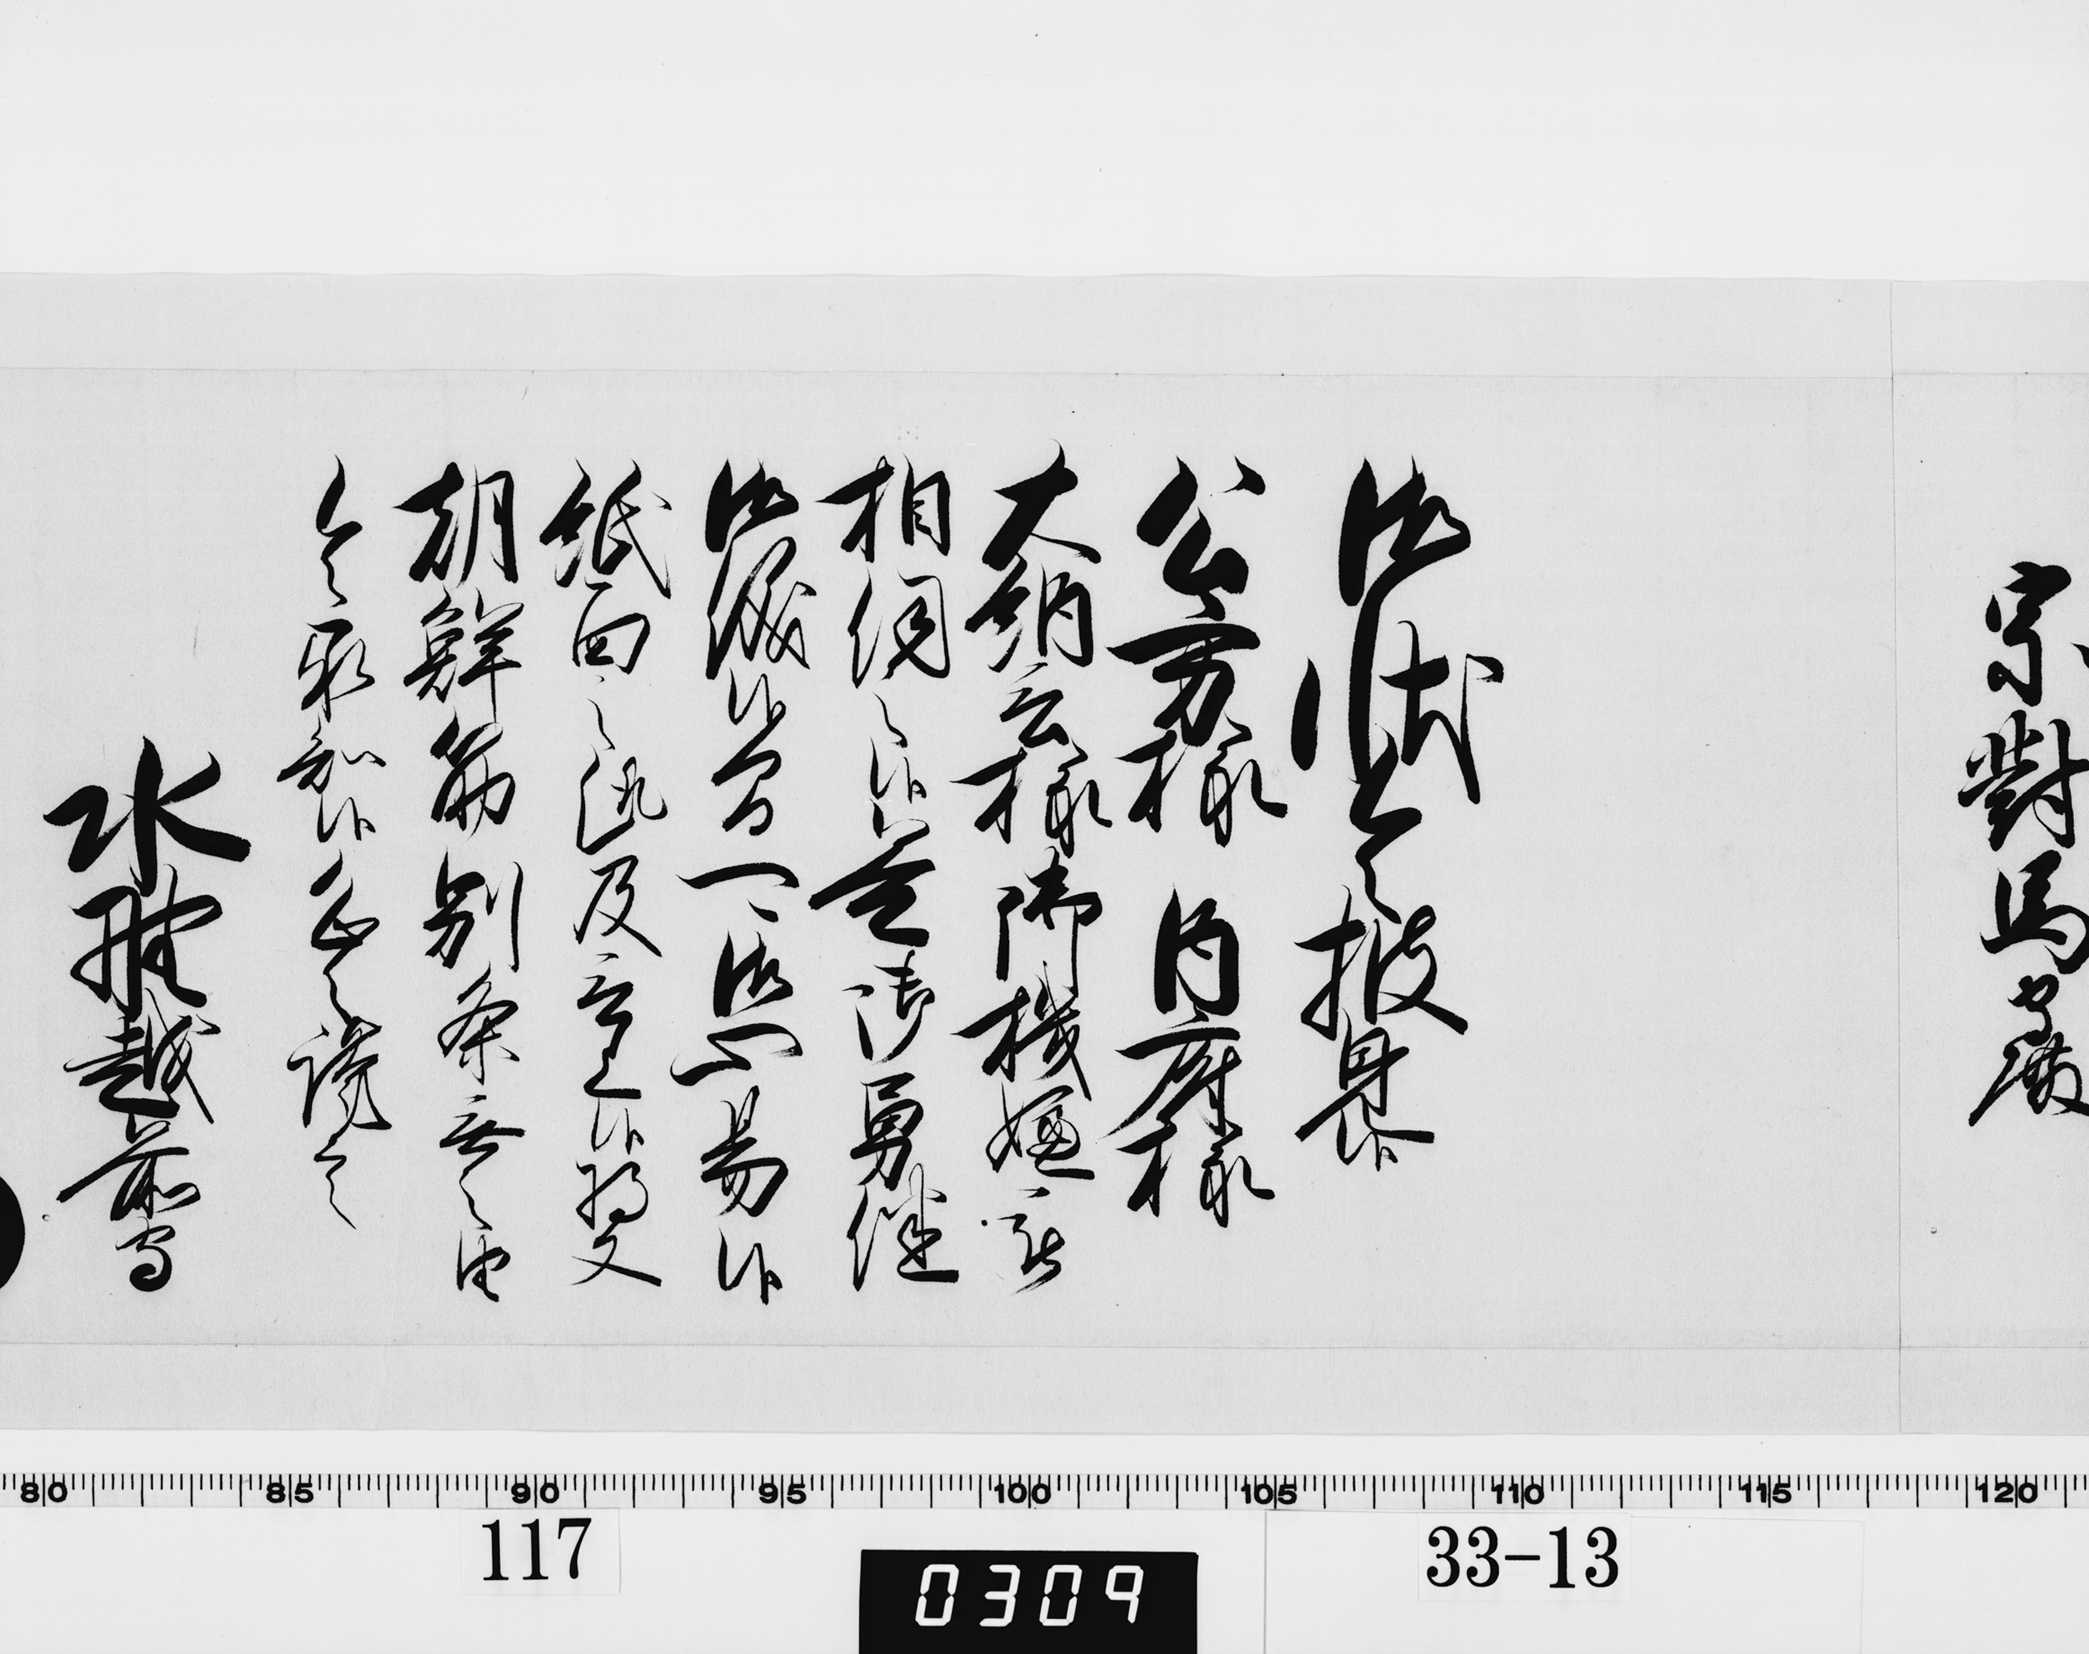 宗對馬守殿
御状令披見候
公方様　内府様
大納言様御機嫌被
相伺之候益御勇健
御儀候間可御心易候
紙面之趣及言上候将又
朝鮮筋別条無之由
令承知候恐々謹言
水野越前守
80 85 90 95 100 105 110 115 120
117
33-13
0309